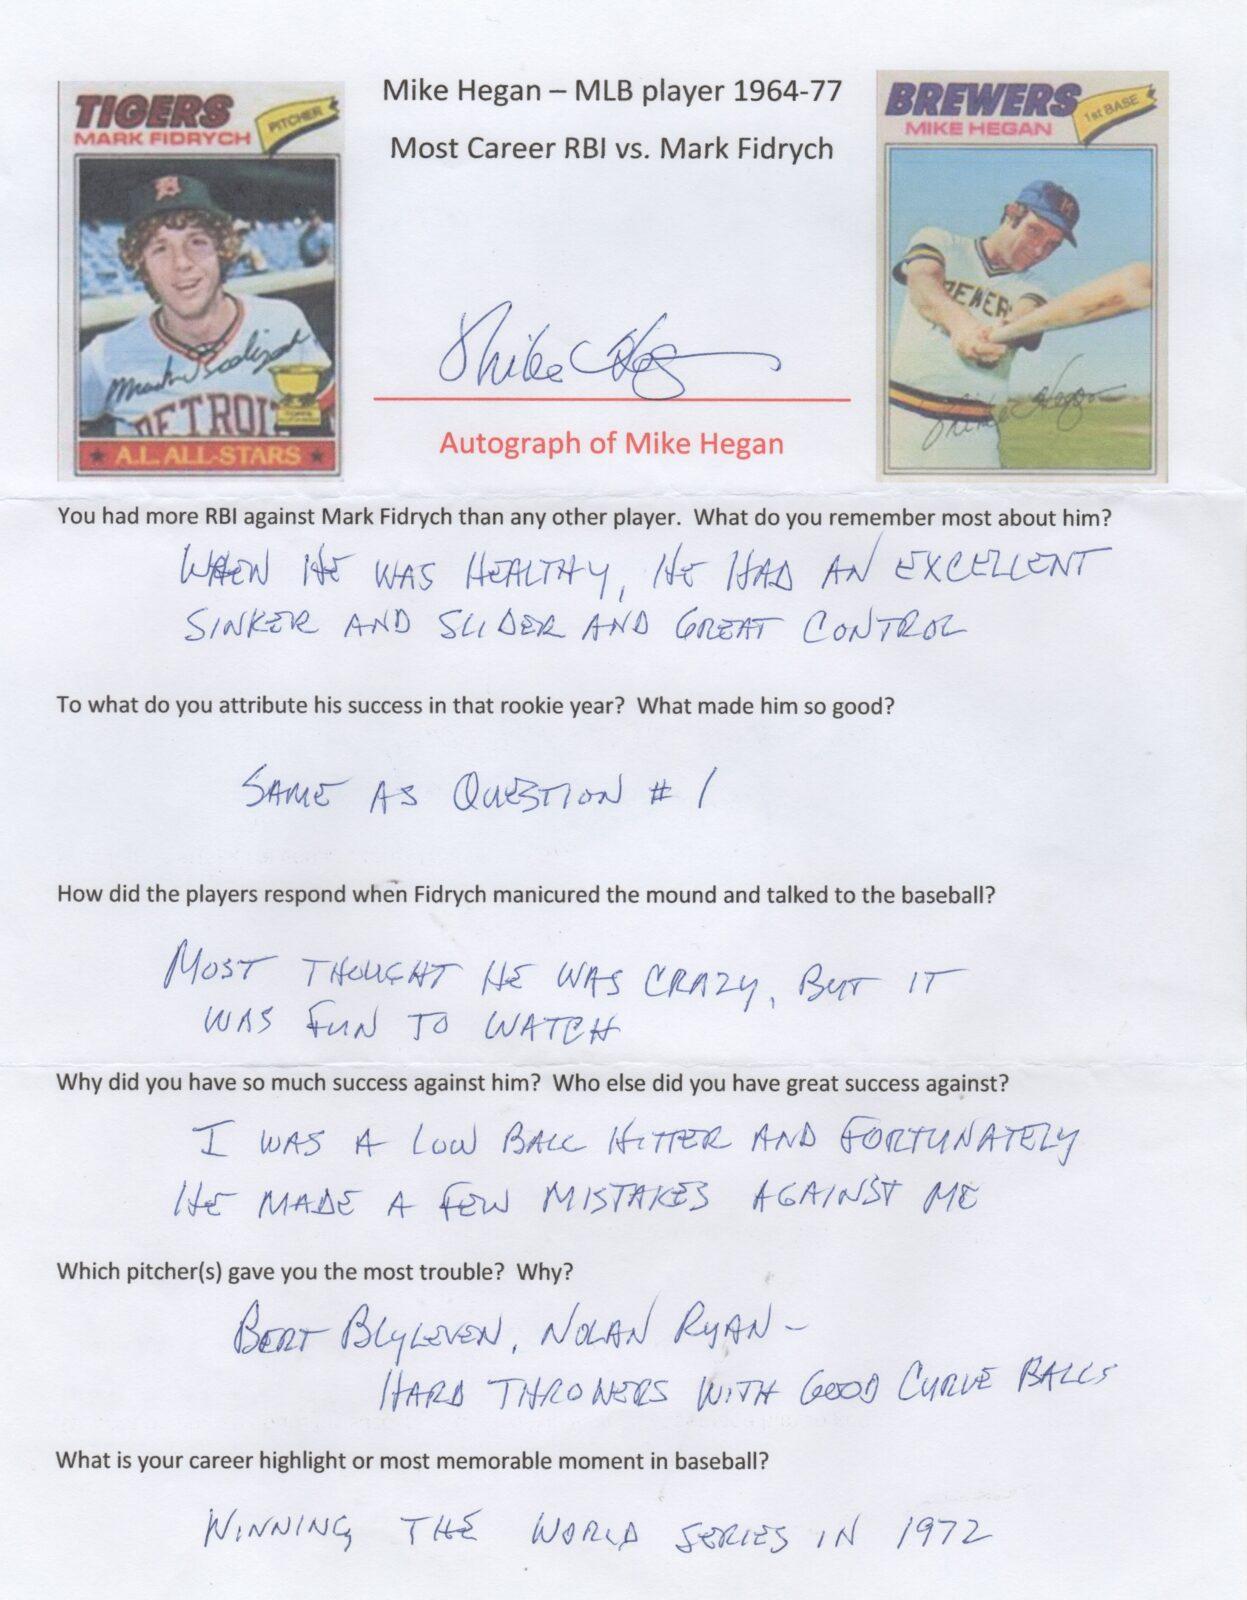 TIGERS
MARK FIDRYCH
PITCHER
DETROIT
A.L. ALL-STARS
Mike Hegan – MLB player 1964-77
Most Career RBI vs. Mark Fidrych
Mike Hegan
Autograph of Mike Hegan
BREWERS
MIKE HEGAN
1st BASE
Mike Hegan
You had more RBI against Mark Fidrych than any other player.  What do you remember most about him?
WHEN HE WAS HEALTHY, HE HAD AN EXCELLENT
SINKER AND SLIDER AND GREAT CONTROL
To what do you attribute his success in that rookie year?  What made him so good?
SAME AS QUESTION # 1
How did the players respond when Fidrych manicured the mound and talked to the baseball?
MOST THOUGHT HE WAS CRAZY, BUT IT
WAS FUN TO WATCH
Why did you have so much success against him?  Who else did you have great success against?
I WAS A LOW BALL HITTER AND FORTUNATELY
HE MADE A FEW MISTAKES AGAINST ME
Which pitcher(s) gave you the most trouble?  Why?
BERT BLYLEVEN, NOLAN RYAN –
HARD THROWERS WITH GOOD CURVE BALLS
What is your career highlight or most memorable moment in baseball?
WINNING THE WORLD SERIES IN 1972